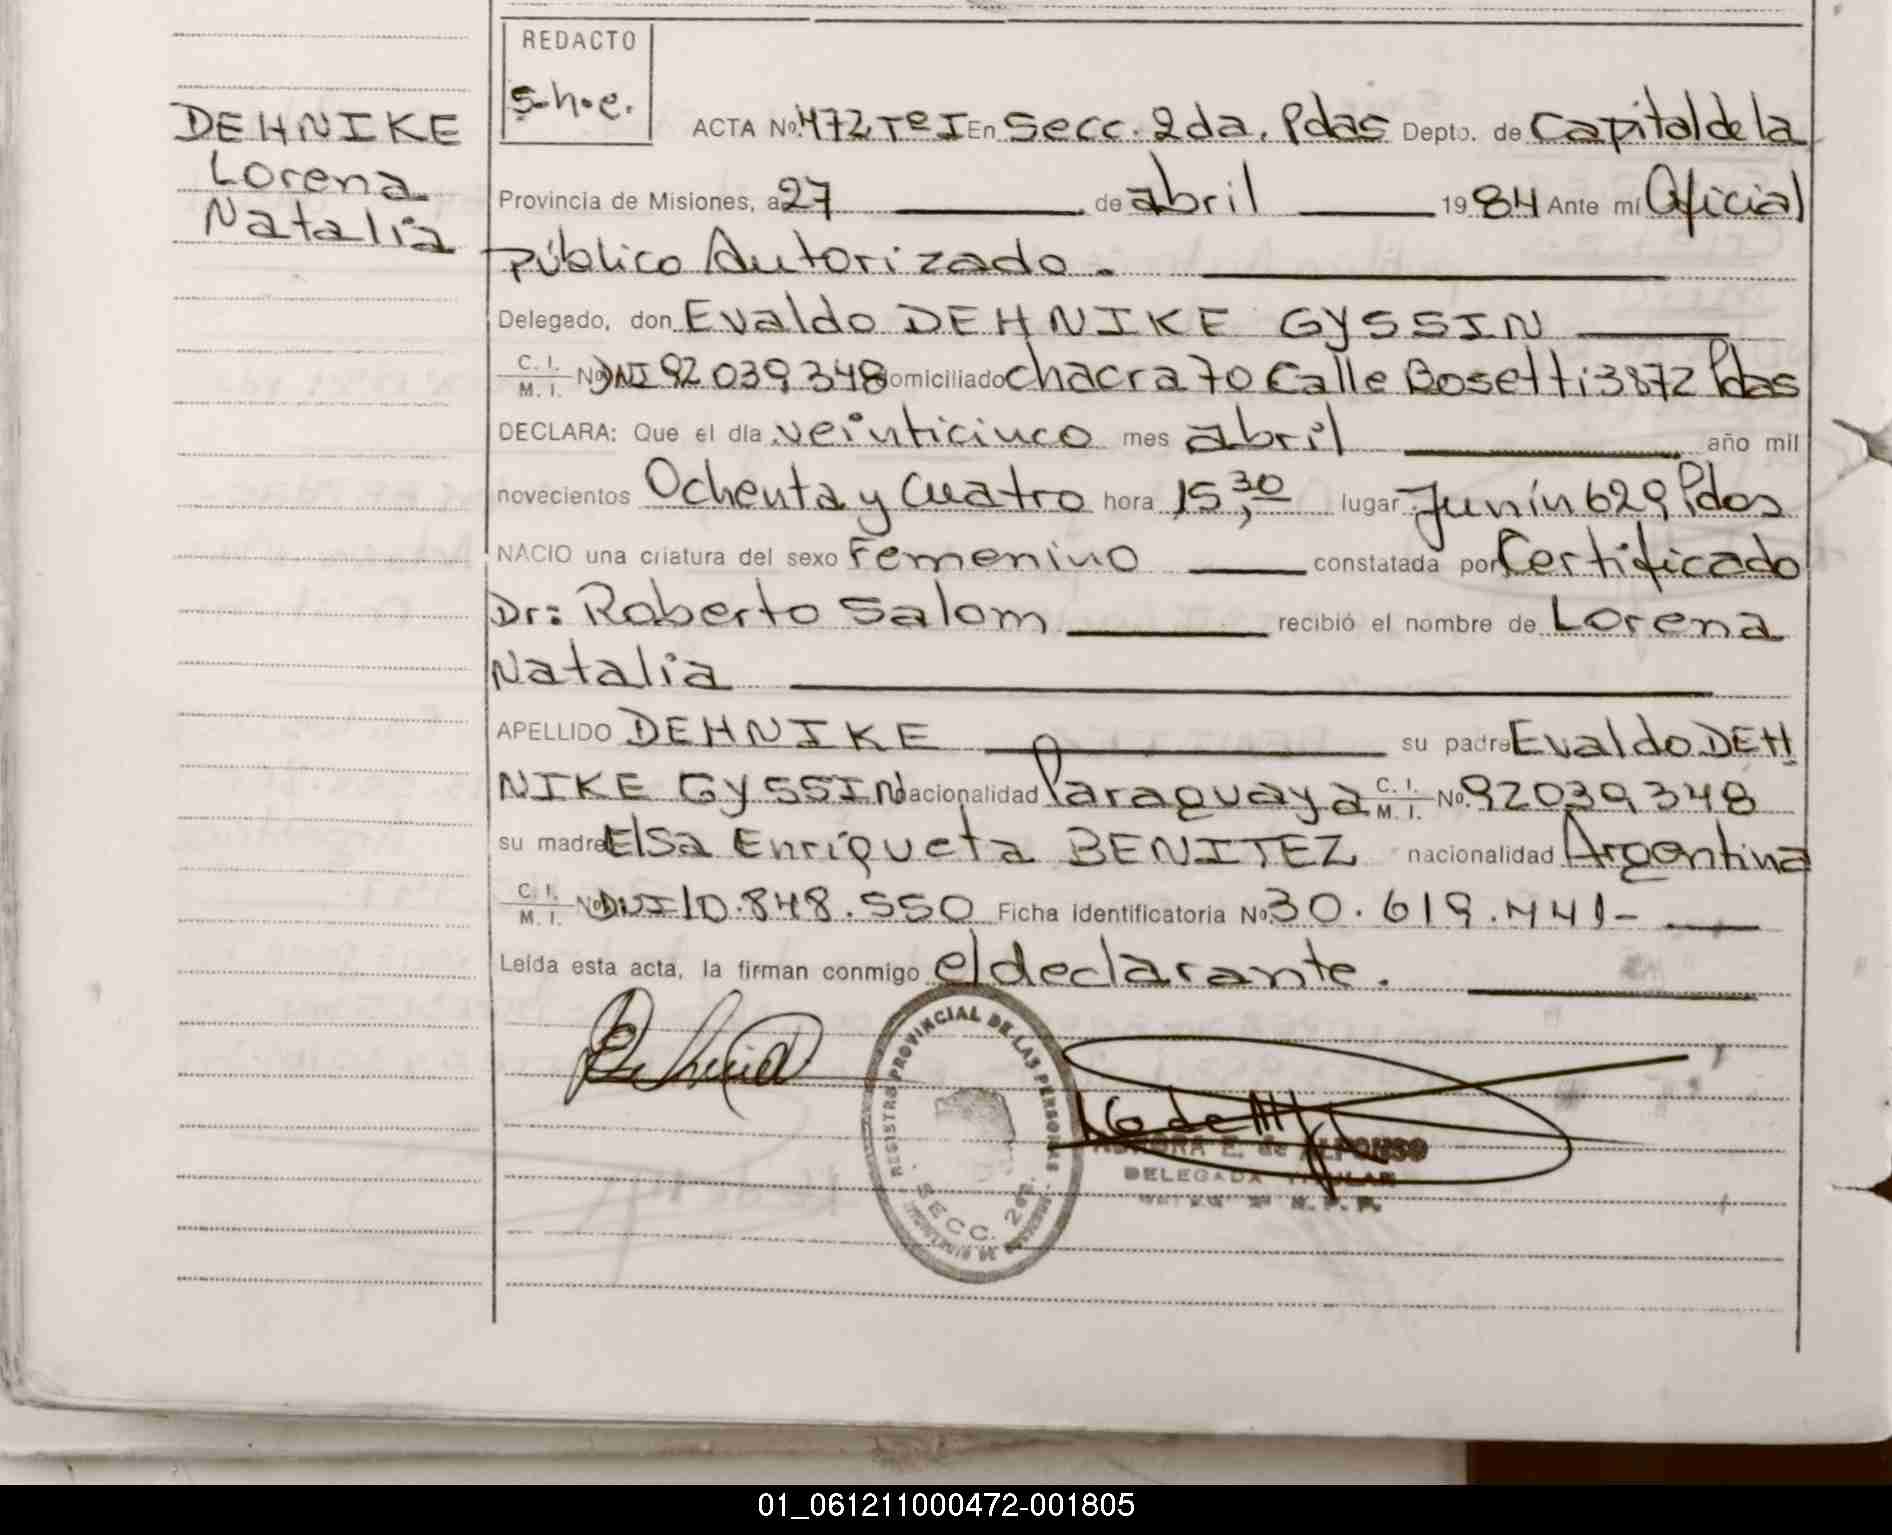 REDACTO
s.h.e.
DEHNIKE
Lorena
Natalia
ACTA Nº 472 Tº I En Secc. 2da. Pdas Depto. de Capital de la
Provincia de Misiones, a 27 de abril 1984 Ante mí Oficial
público Autorizado.
Delegado, don Evaldo DEHNIKE GYSSIN
C. I. / M. I. Nº DNI 92 039 348 domiciliado chacra 70 Calle Bosetti 3872 Pdas
DECLARA: Que el día veinticinco mes abril año mil
novecientos Ochenta y Cuatro hora 15,30 lugar Junín 629 Pdas
NACIO una criatura del sexo Femenino constatada por Certificado
Dr: Roberto Salom recibió el nombre de Lorena
Natalia
APELLIDO DEHNIKE su padre Evaldo DEH
NIKE GYSSIN nacionalidad Paraguaya C. I. / M. I. Nº 92039348
su madre Elsa Enriqueta BENITEZ nacionalidad Argentina
C. I. / M. I. Nº DNI 10.848.550 Ficha identificatoria Nº 30.619.441-
Leída esta acta, la firman conmigo el declarante.
REGISTRO PROVINCIAL DE LAS PERSONAS
SECC. 2da.
E. de ALFONSO
DELEGADA TITULAR
R. P. P.
01_061211000472-001805